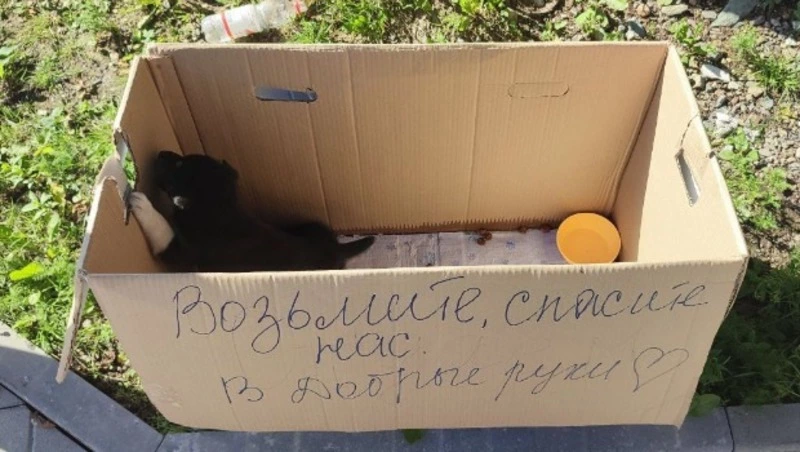 Возьмите, спасите
нас.
В добрые руки ♡